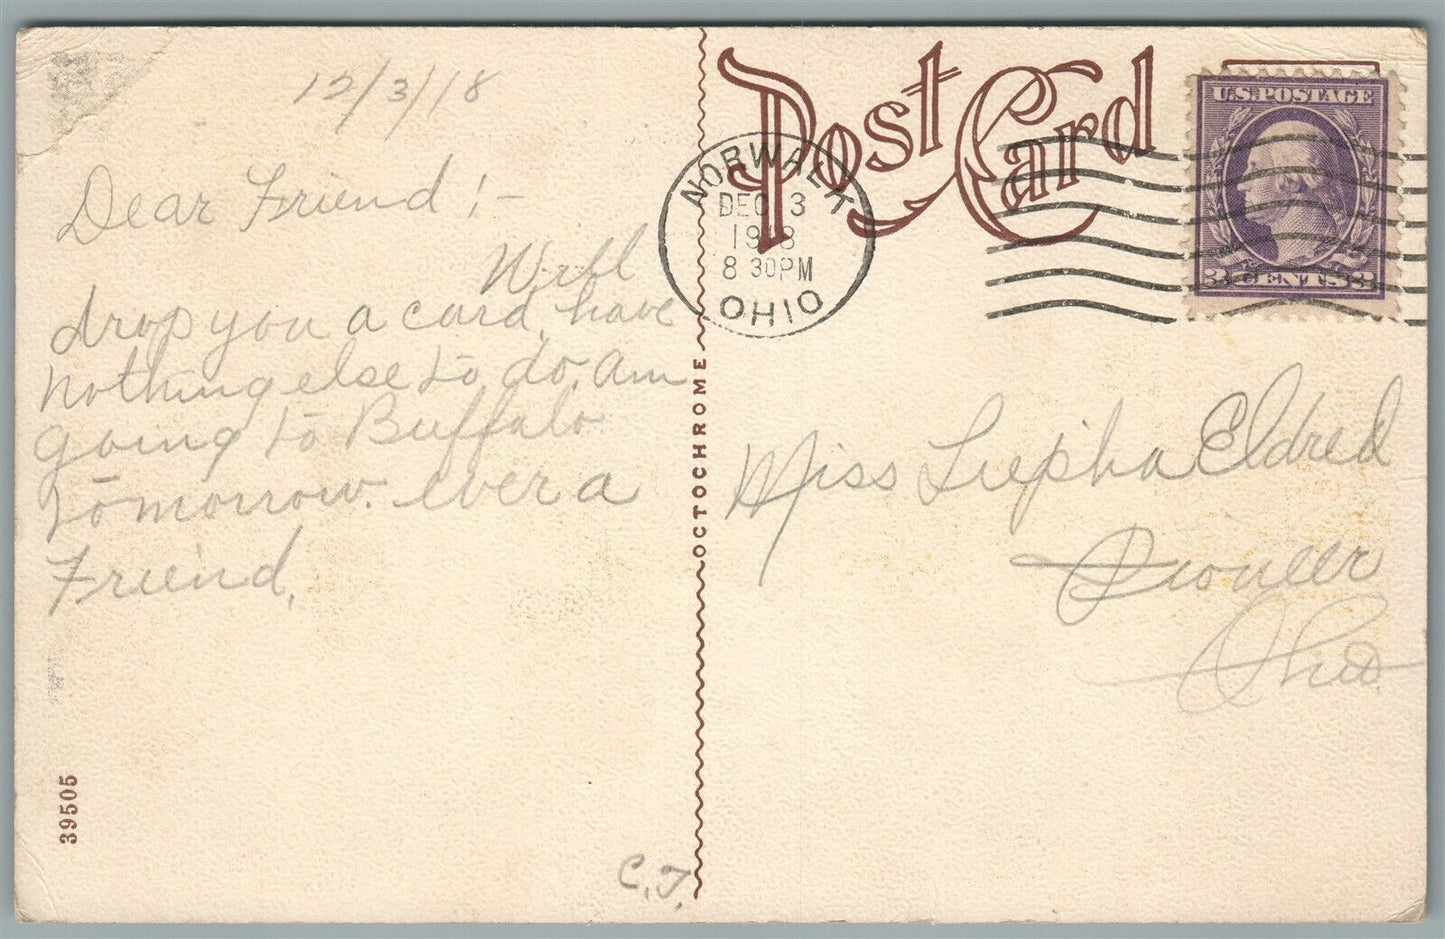 12/3/18
Dear Friend!-
Will
drop you a card, have
nothing else to do, am
going to Buffalo
tomorrow. ever a
Friend,
39505
C.T.
OCTOCHROME
Post Card
NORWALK
DEC 3
1918
8 30PM
OHIO
U.S.POSTAGE
3 CENTS 3
Miss Eldred
Pioneer
Ohio